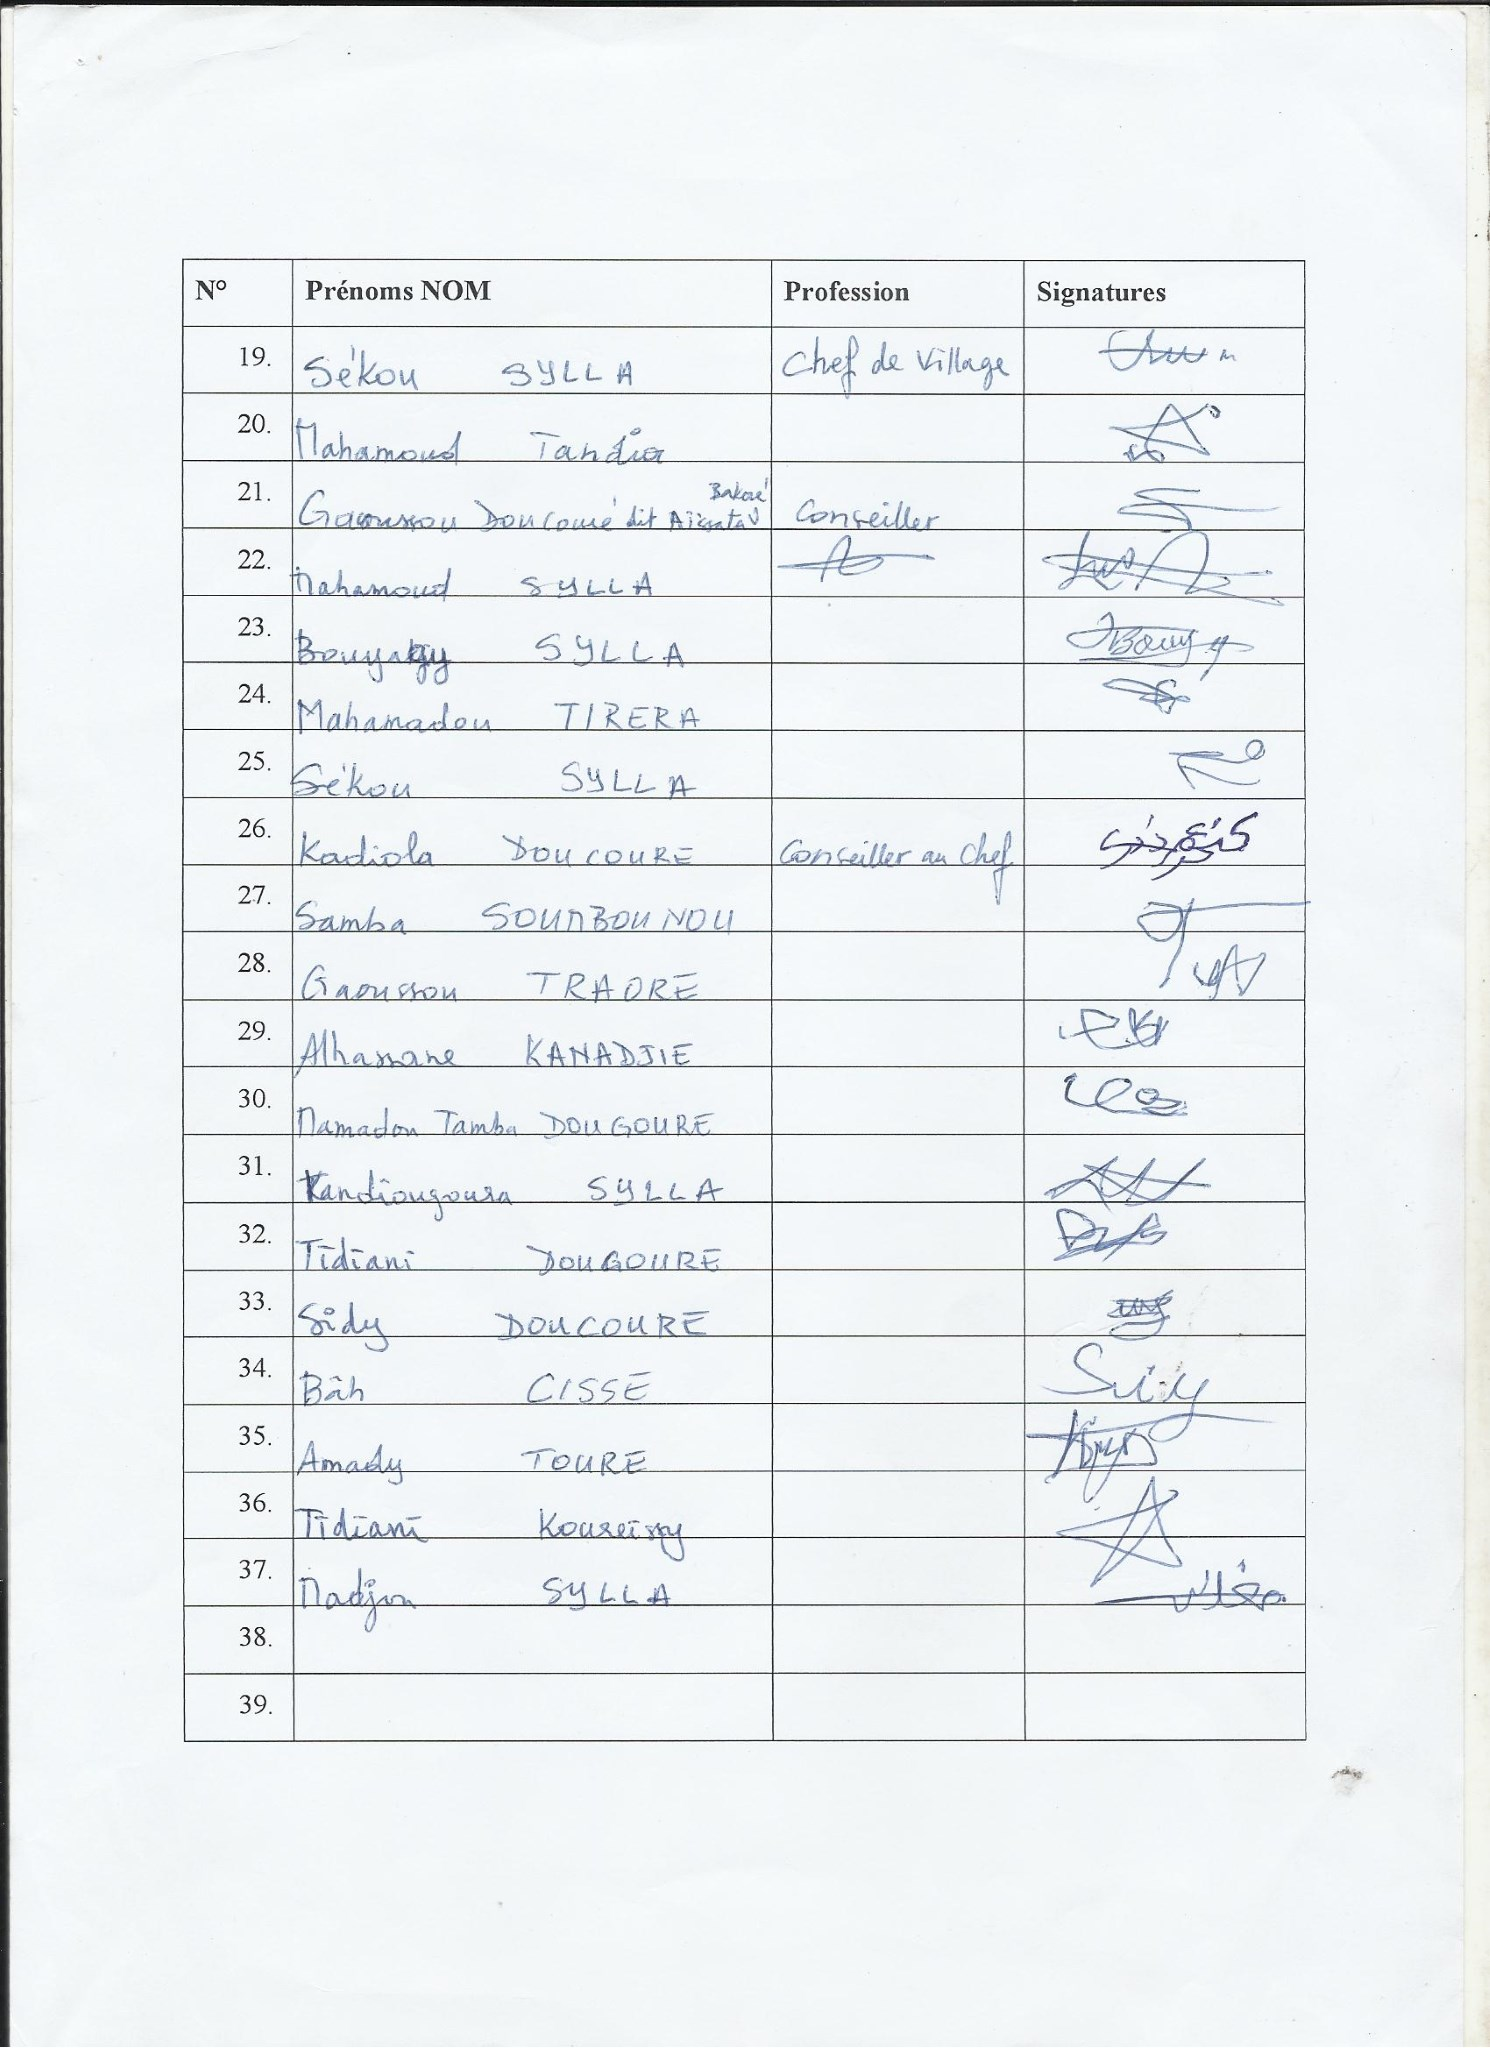 N° Prénoms NOM Profession Signatures
19. Sékou SYLLA Chef de Village
20. Mahamoud Tandia
21. Gaoussou Doucouré dit Aïssata Bakoré Conseiller
22. Mahamoud SYLLA
23. SYLLA
24. Mahamadou TIRERA
25. Sékou SYLLA
26. Kadiola DOUCOURE Conseiller au Chef
27. Samba SOUMBOUNOU
28. Gaoussou TRAORE
29. Alhassane KANADJIE
30. Mamadou Tamba DOUGOURE
31. Kandiougoura SYLLA
32. Tidiani DOUGOURE
33. Sidy DOUCOURE
34. Bâh CISSE
35. Amady TOURE
36. Tidiani Koureissy
37. Madjou SYLLA
38.
39.